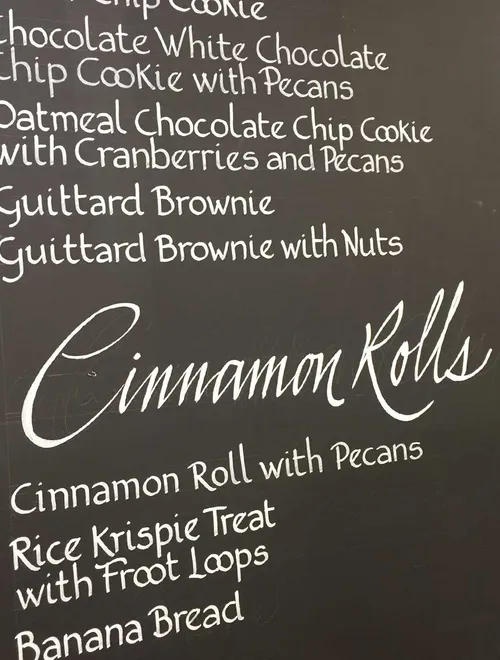 Chip Cookie
Chocolate White Chocolate
Chip Cookie with Pecans
Oatmeal Chocolate Chip Cookie
with Cranberries and Pecans
Guittard Brownie
Guittard Brownie with Nuts
Cinnamon Rolls
Cinnamon Roll with Pecans
Rice Krispie Treat
with Froot Loops
Banana Bread